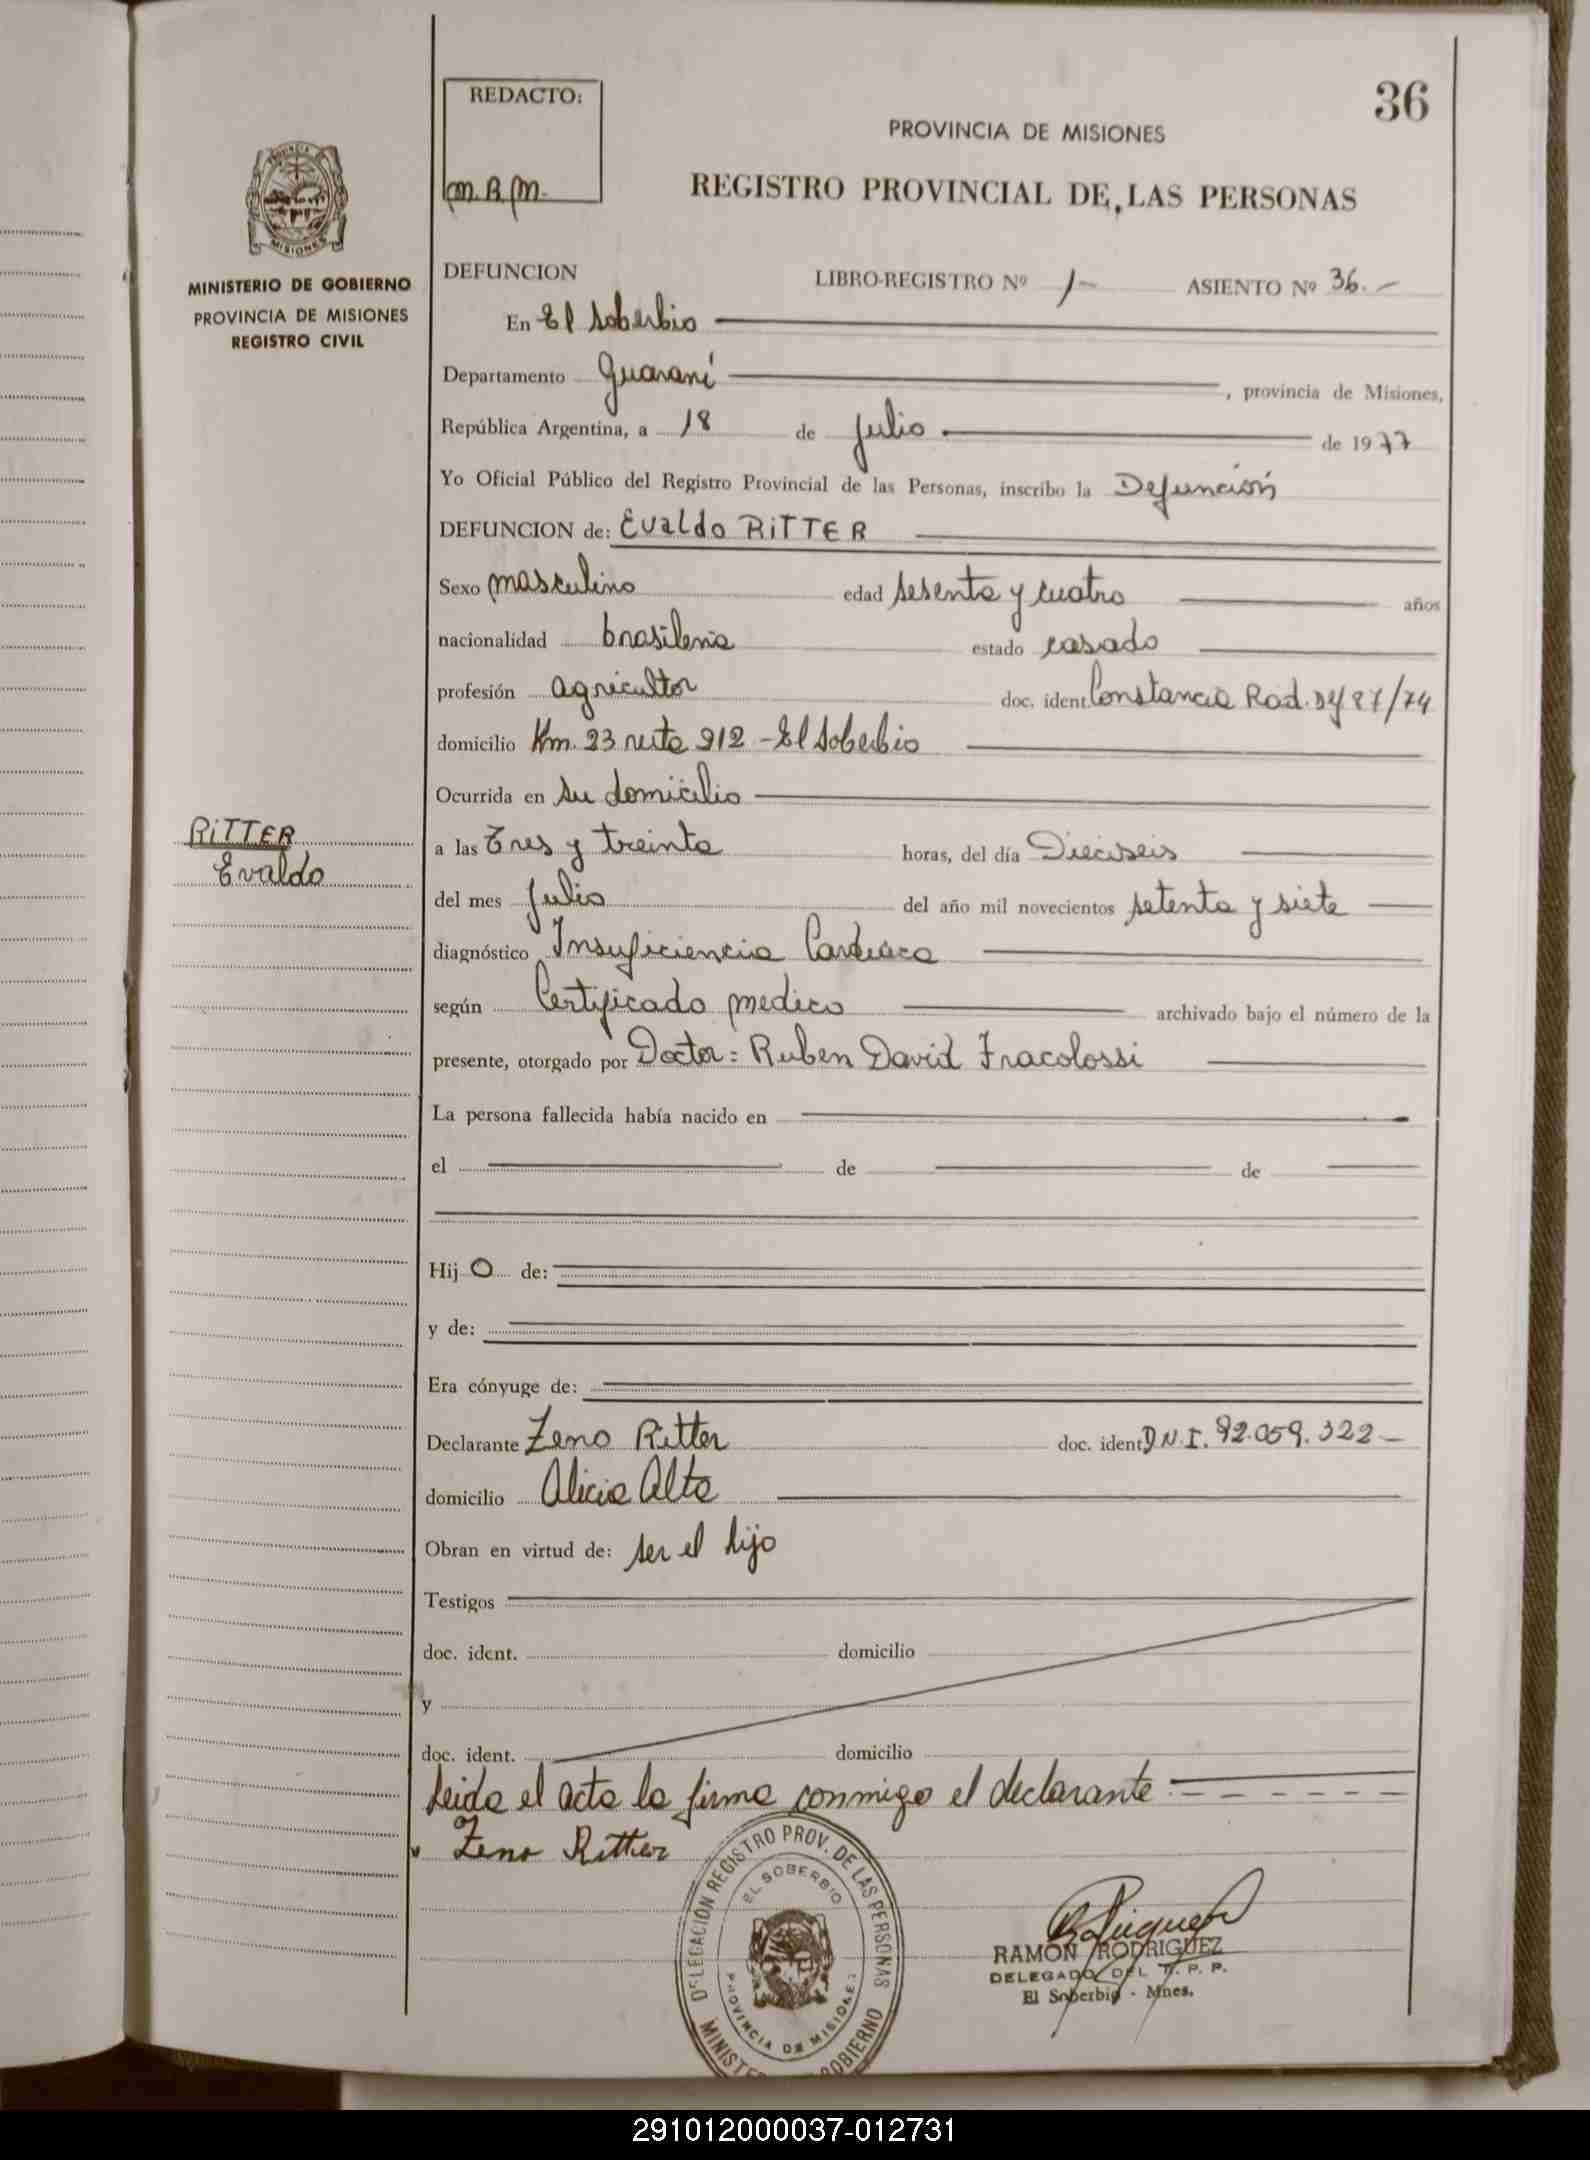 36
REDACTO:
m.R.m.
PROVINCIA DE MISIONES
REGISTRO PROVINCIAL DE LAS PERSONAS
MISIONES
MINISTERIO DE GOBIERNO
PROVINCIA DE MISIONES
REGISTRO CIVIL
DEFUNCION LIBRO-REGISTRO Nº 1- ASIENTO Nº 36.-
En El Soberbio
Departamento Guaraní , provincia de Misiones,
República Argentina, a 18 de Julio de 1977
Yo Oficial Público del Registro Provincial de las Personas, inscribo la Defunción
DEFUNCION de: Evaldo RITTER
Sexo masculino edad sesenta y cuatro años
nacionalidad brasilena estado casado
profesión agricultor doc. ident. Constancia Rad. 87/74
domicilio Km. 23 ruta 212 - El Soberbio
Ocurrida en su domicilio
RITTER
Evaldo
a las tres y treinta horas, del día Dieciseis
del mes Julio del año mil novecientos setenta y siete
diagnóstico Insuficiencia Cardiaca
según Certificado medico archivado bajo el número de la
presente, otorgado por Doctor: Ruben David Fracolossi
La persona fallecida había nacido en
el de de
Hij O de:
y de:
Era cónyuge de:
Declarante Zeno Ritter doc. ident. D.N.I. 92.059.322-
domicilio Alicia Alta
Obran en virtud de: ser el hijo
Testigos
doc. ident. domicilio
y
doc. ident. domicilio
Leida el acta la firma conmigo el declarante
Zeno Ritter
DELEGACIÓN REGISTRO PROV. DE LAS PERSONAS
EL SOBERBIO
PROVINCIA DE MISIONES
RAMON RODRIGUEZ
DELEGADO DEL R. P. P.
El Soberbio - Mnes.
291012000037-012731